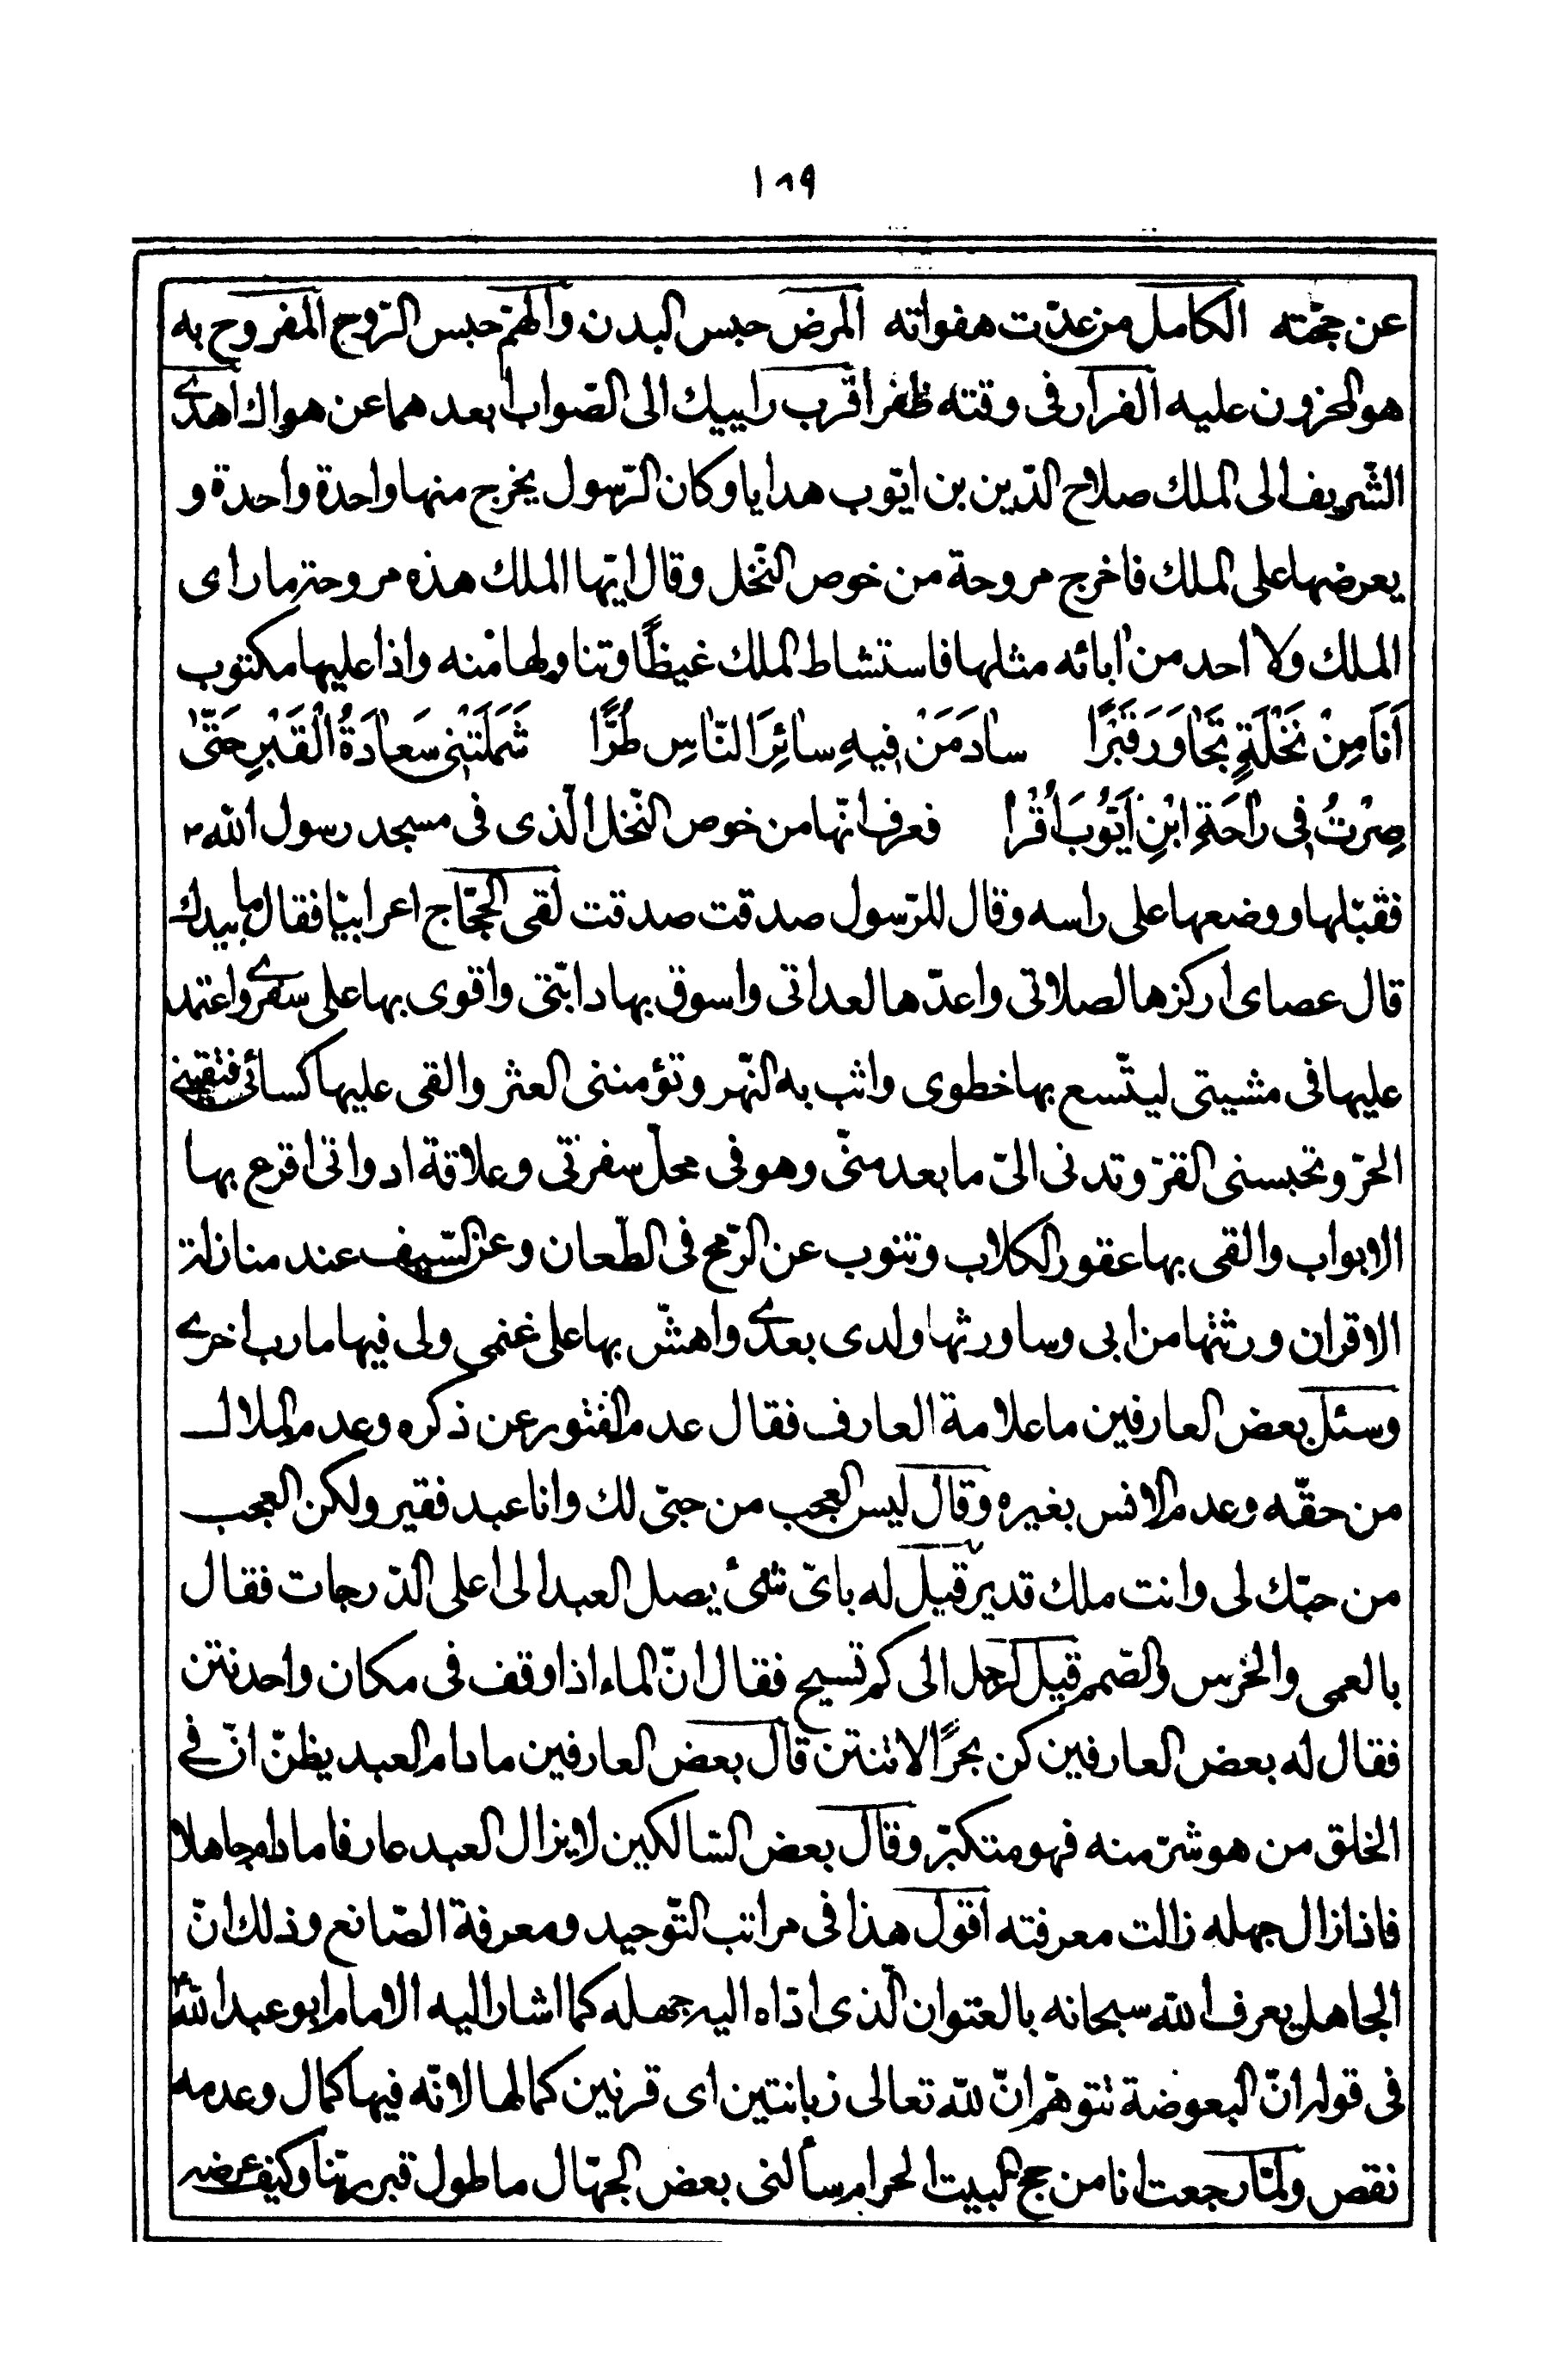 ١٨٩
عن حجّته الكامل من عدّت هفواته المرض حبس البدن والهمّ حبس الرّوح المفروح به
هو المحزون عليه الفرار فى وقته ظفر اقرب رأييك الى الصّواب ابعدهما عن هواك اهدى
الشّريف الى الملك صلاح الدّين بن ايّوب هدايا وكان الرّسول يخرج منها واحدة واحدة و
يعرضها على الملك فاخرج مروحة من خوص النّخل وقال ايّها الملك هذه مروحة ما راى
الملك ولا احد من ابائه مثلها فاستشاط الملك غيظًا وتناولها منه واذا عليها مكتوب
اَنَا مِنْ نَخْلَةٍ تَجَاوَرَ قَبْرًا سادَ مَنْ فيهِ سائِرَ النّاسِ طُرًّا شَمَلَتْنى سَعادَةُ الْقَبْرِ حَتّىٰ
صِرْتُ فى راحَةِ ابْنِ اَيّوُبَ اُقْرا فعرف انّها من خوص النّخل الّذى فى مسجد رسول الله ص
فقبّلها ووضعها على راسه وقال للرّسول صدقت صدقت لقى الحجّاج اعرابيّا فقال ما بيدك
قال عصاى اركزها لصلاتى واعدّها لعداتى واسوق بها دابّتى واقوى بها على سفرى واعتمد
عليها فى مشيتى ليتّسع بها خطوى واثب به النّهر وتؤمننى العثر والقى عليها كسائى فتقينى
الحرّ وتحبسنى القرّ وتدنى الىّ ما بعد منّى وهو فى محلّ سفرتى وعلاقة ادواتى اقرع بها
الابواب والقى بها عقور الكلاب وتنوب عن الرّمح فى الطّعان وعن السّيف عند منازلة
الاقران ورثتها من ابى وساورثها ولدى بعدى واهشّ بها على غنمى ولى فيها مارب اخرى
وسئل بعض العارفين ما علامة العارف فقال عدم الفتور عن ذكره وعدم الملال
من حقّه وعدم الانس بغيره وقال ليس العجب من حبّى لك وانا عبد فقير ولكن العجب
من حبّك لى وانت ملك قدير قيل له باىّ شئ يصل العبد الى اعلى الدّرجات فقال
بالعمى والخرس والصّمم قيل لرجل الى كم تسيح فقال انّ الماء اذا وقف فى مكان واحد نتن
فقال له بعض العارفين كن بحرًا لا تنتن قال بعض العارفين ما دام العبد يظنّ انّ فى
الخلق من هو شرّ منه فهو متكبّر وقال بعض السّالكين لا يزال العبد عارفا ما دام جاهلا
فاذا زال جهله زالت معرفته اقول هذا فى مراتب التّوحيد ومعرفة الصّانع وذلك انّ
الجاهل يعرف الله سبحانه بالعنوان الّذى ادّاه اليه جهله كما اشار اليه الامام ابو عبدالله ع
فى قوله انّ البعوضة تتوهّم انّ لله تعالى زبانتين اى قرنين كمالها لانّه فيها كمال وعدمه
نقص ولمّا رجعت انا من حج البيت الحرام سألنى بعض الجهّال ما طول قبر ربّنا وكيف عرضه